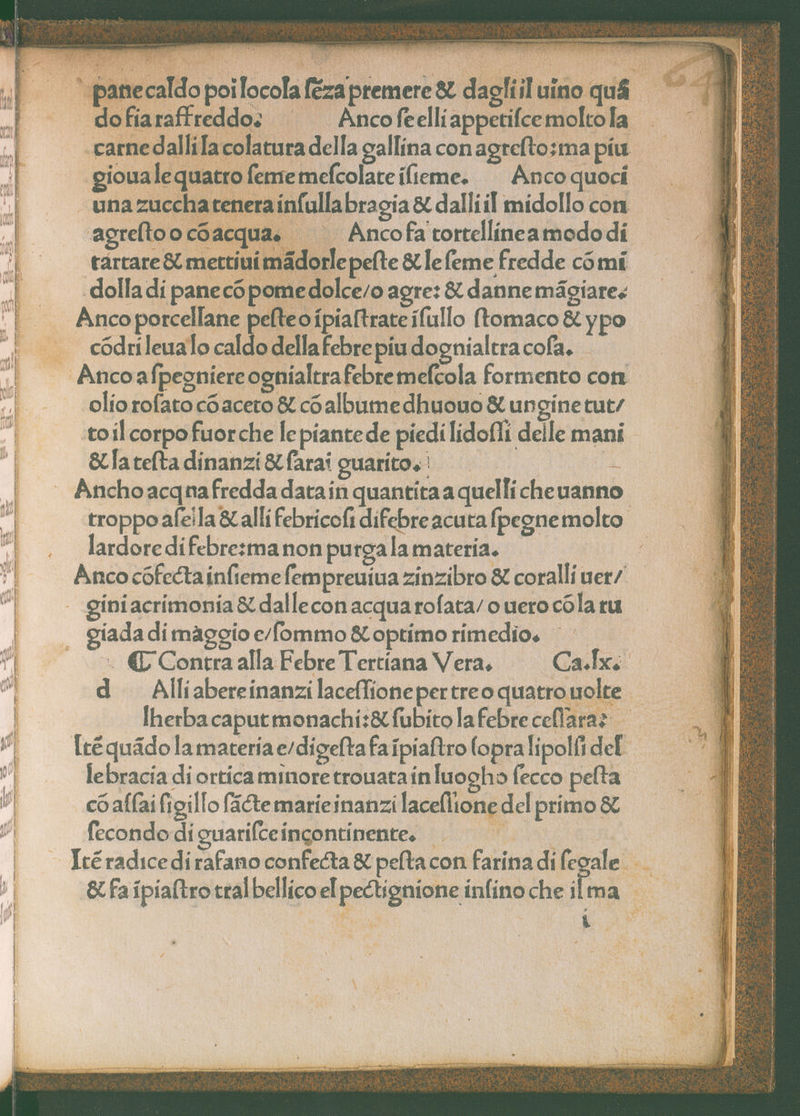 pane caldo poi lo cola ſēza premere & dagli il uino quā
do ſia raffreddo: Anco ſe elli appetiſce molto la
carne dalli la colatura della gallina con agreſto: ma piu
gioua le quatro ſeme meſcolate iſieme. Anco quoci
una zuccha tenera inſulla bragia & dalli il midollo con
agreſto o cō acqua. Anco fa tortelline a modo di
tartare & mettiui mādorle peſte & le ſeme fredde cō mi
dolla di pane cō pome dolce/o agre: & danne māgiare.
Anco porcellane peſte o ipiaſtrate iſullo ſtomaco & ypo
cōdri leua lo caldo della febre piu dogni altra coſa.
Anco a ſpegniere ogni altra febre meſcola formento con
olio roſato cō aceto & cō albume dhuouo & ungine tut/
to il corpo fuor che le piante de piedi lidoſſi delle mani
& la teſta dinanzi & farai guarito.
Ancho acq̄na fredda data in quantita a quelli che uanno
troppo aſella & alli febricoſi di febre acuta ſpegne molto
lardore di febre: ma non purga la materia.
Anco cōfecta inſieme ſempreuiua zinzibro & coralli uer/
gini acrimonia & dalle con acqua roſata/ o uero cō la ru
giada di màggio e/ſommo & optimo rimedio.
¶ Contra alla Febre Tertiana Vera. Ca.lx.
d Alli a bere inanzi laceſſione per tre o quatro uolte
lherba caput monachi: & ſubito la febre ceſſara:
Itē quādo la materia e/digeſta fa ipiaſtro ſopra li polſi del
le bracia di ortica minore trouata in luogho ſecco peſta
cō aſſai ſigillo ſācte marie inanzi laceſſione del primo &
ſecondo di guariſce incontinente.
Itē radice di rafano confecta & peſta con farina di ſegale
& fa ipiaſtro tral bellico el pectignione inſino che il ma
i